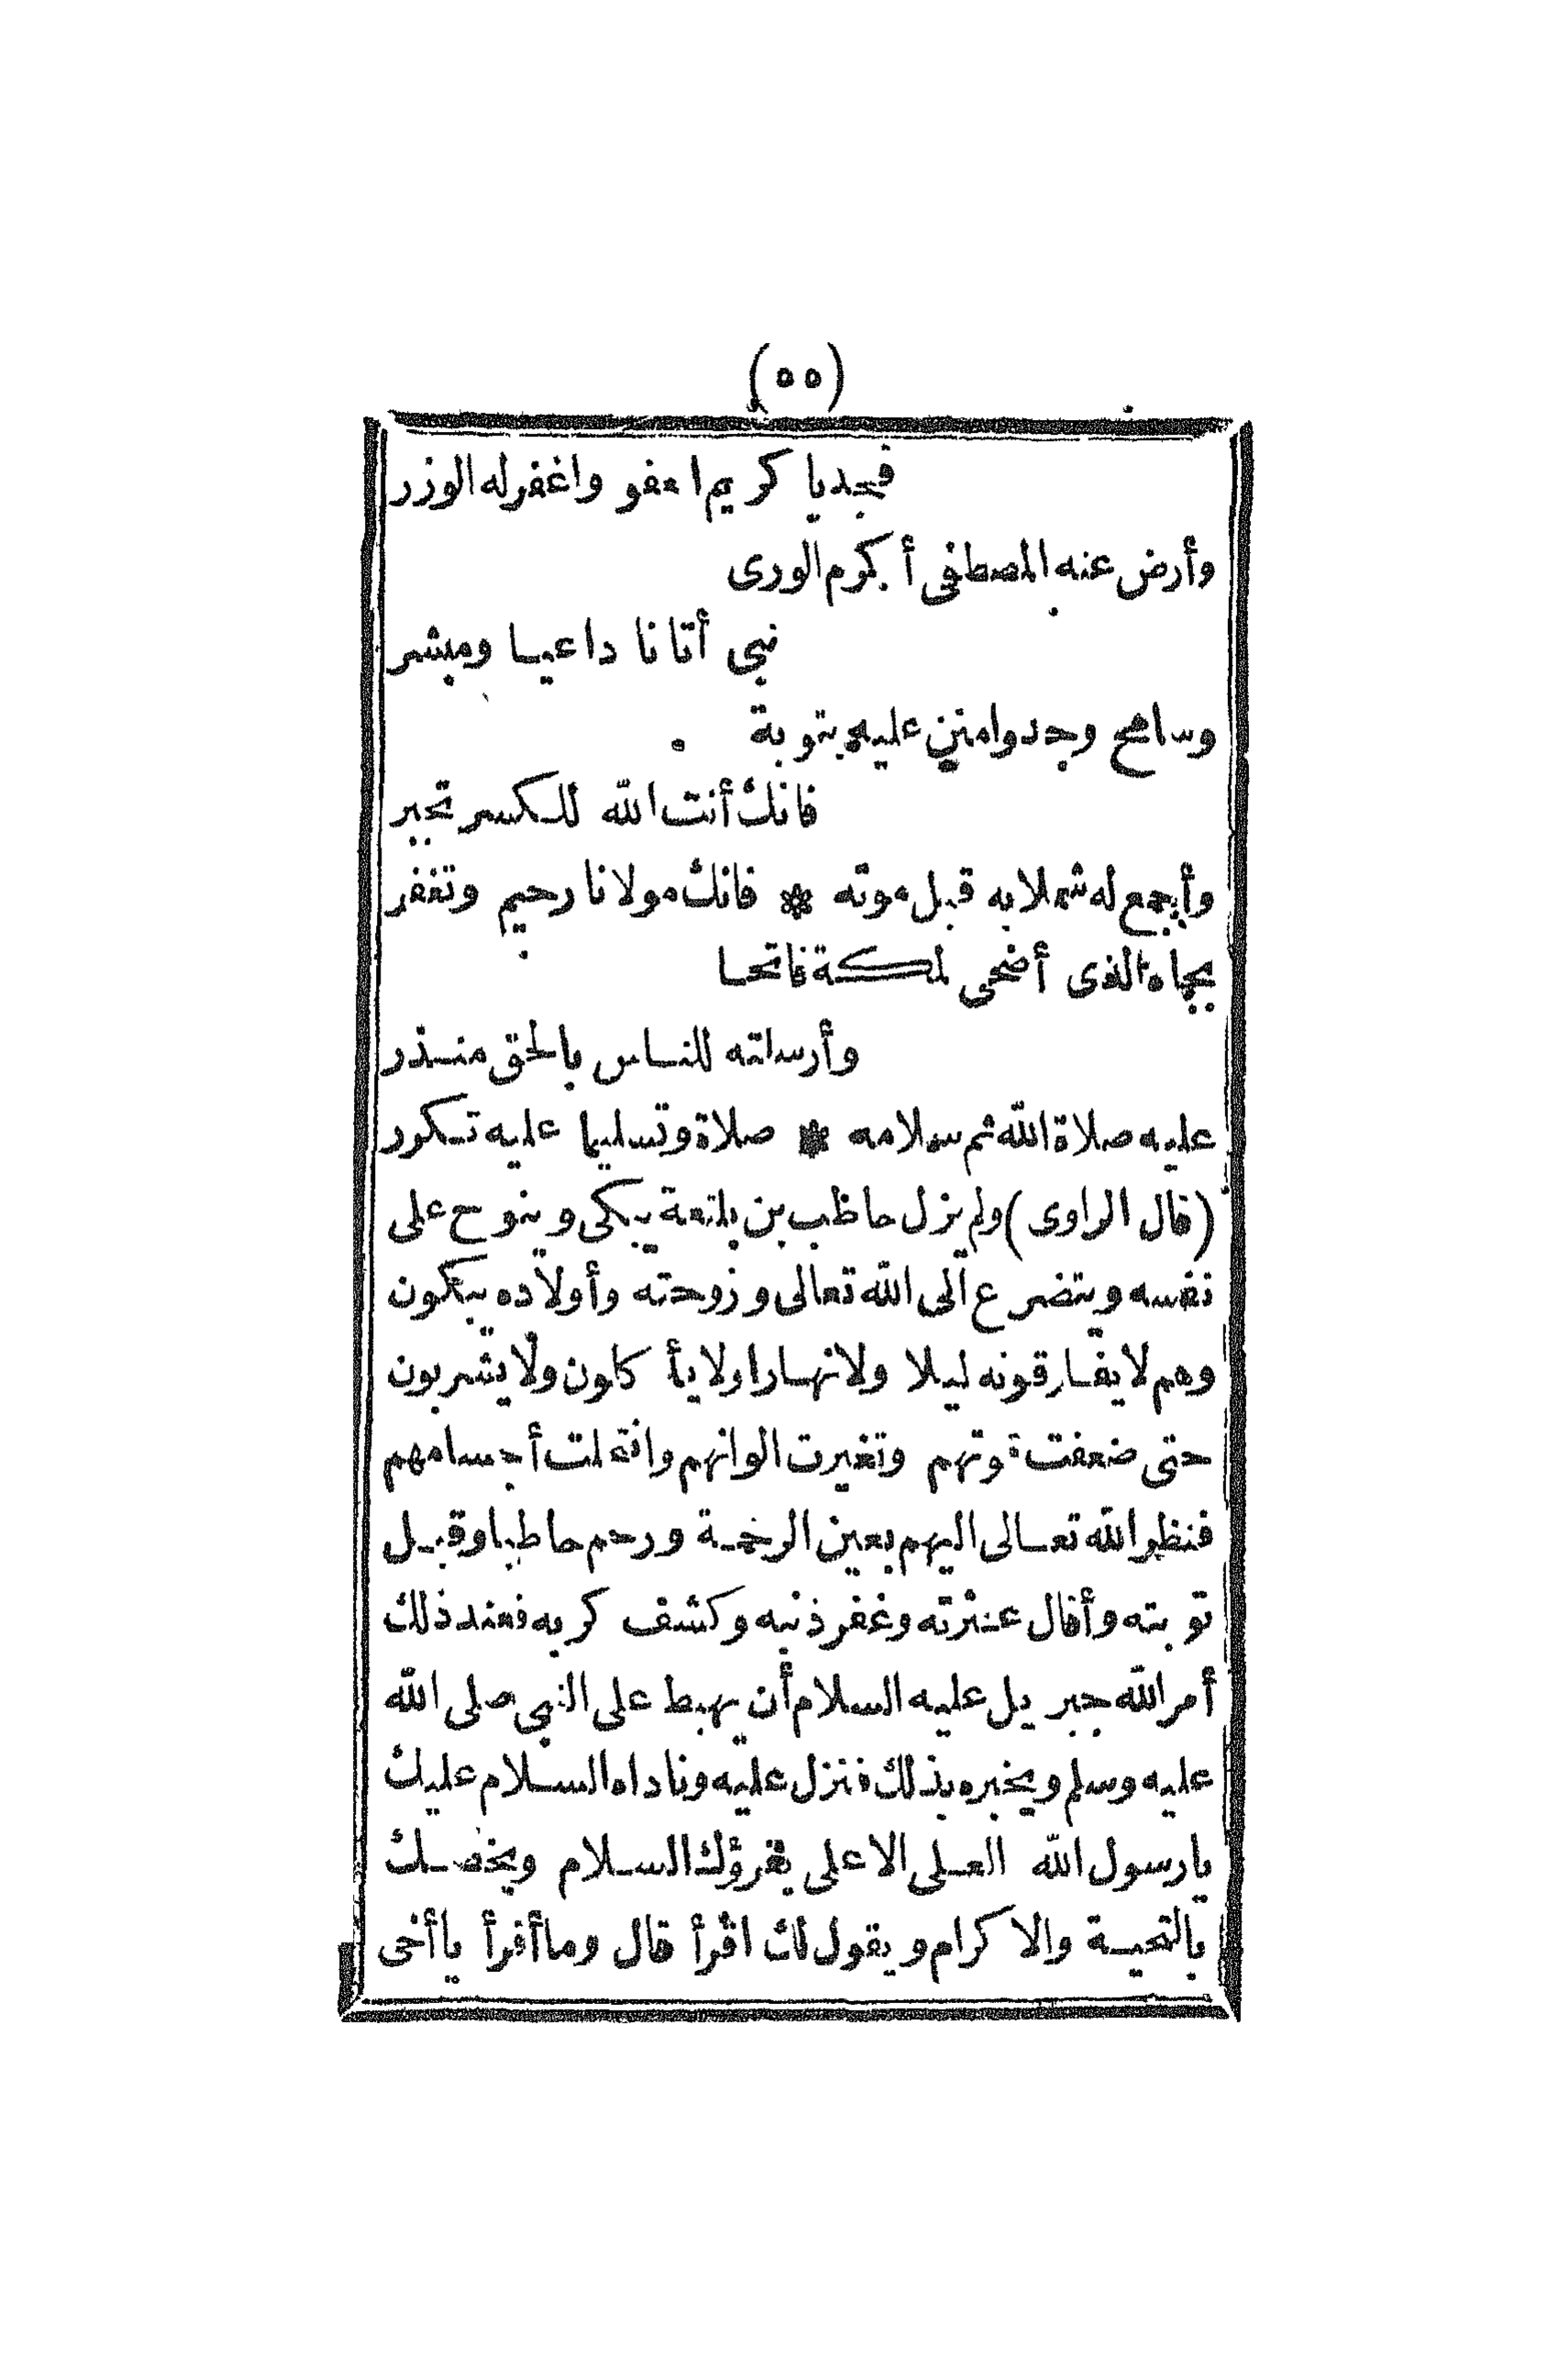 (٥٥)
فجد يا كريم العفو واغفر له الوزر
وأرض عنه المصطفى أكرم الورى
نبي أتانا داعيا ومبشر
وسامح وجد وامنن عليه بتوبة
فانك أنت الله للكسر تجبر
وأجمع له شملا به قبل موته * فانك مولانا رحيم وتغفر
بجاه الذى أضحى لمكة فاتحا
وأرسلته للناس بالحق منذر
عليه صلاة الله ثم سلامه * صلاة وتسليما عليه تكرر
(قال الراوى) ولم يزل حاطب بن بلتعة يبكى وينوح على
نفسه ويتضرع الى الله تعالى وزوجته وأولاده يبكون
وهم لا يفارقونه ليلا ولا نهارا ولا يأكلون ولا يشربون
حتى ضعفت قوتهم وتغيرت الوانهم وانتحلت أجسامهم
فنظر الله تعالى اليهم بعين الرحمة ورحم حاطبا وقبل
توبته وأقال عثرته وغفر ذنبه وكشف كربه فعند ذلك
أمر الله جبريل عليه السلام أن يهبط على النبي صلى الله
عليه وسلم ويخبره بذلك فنزل عليه وناداه السلام عليك
يا رسول الله العلى الاعلى يقرؤك السلام ويخصك
بالتحية والاكرام ويقول لك اقرأ قال وما أقرأ يا أخى